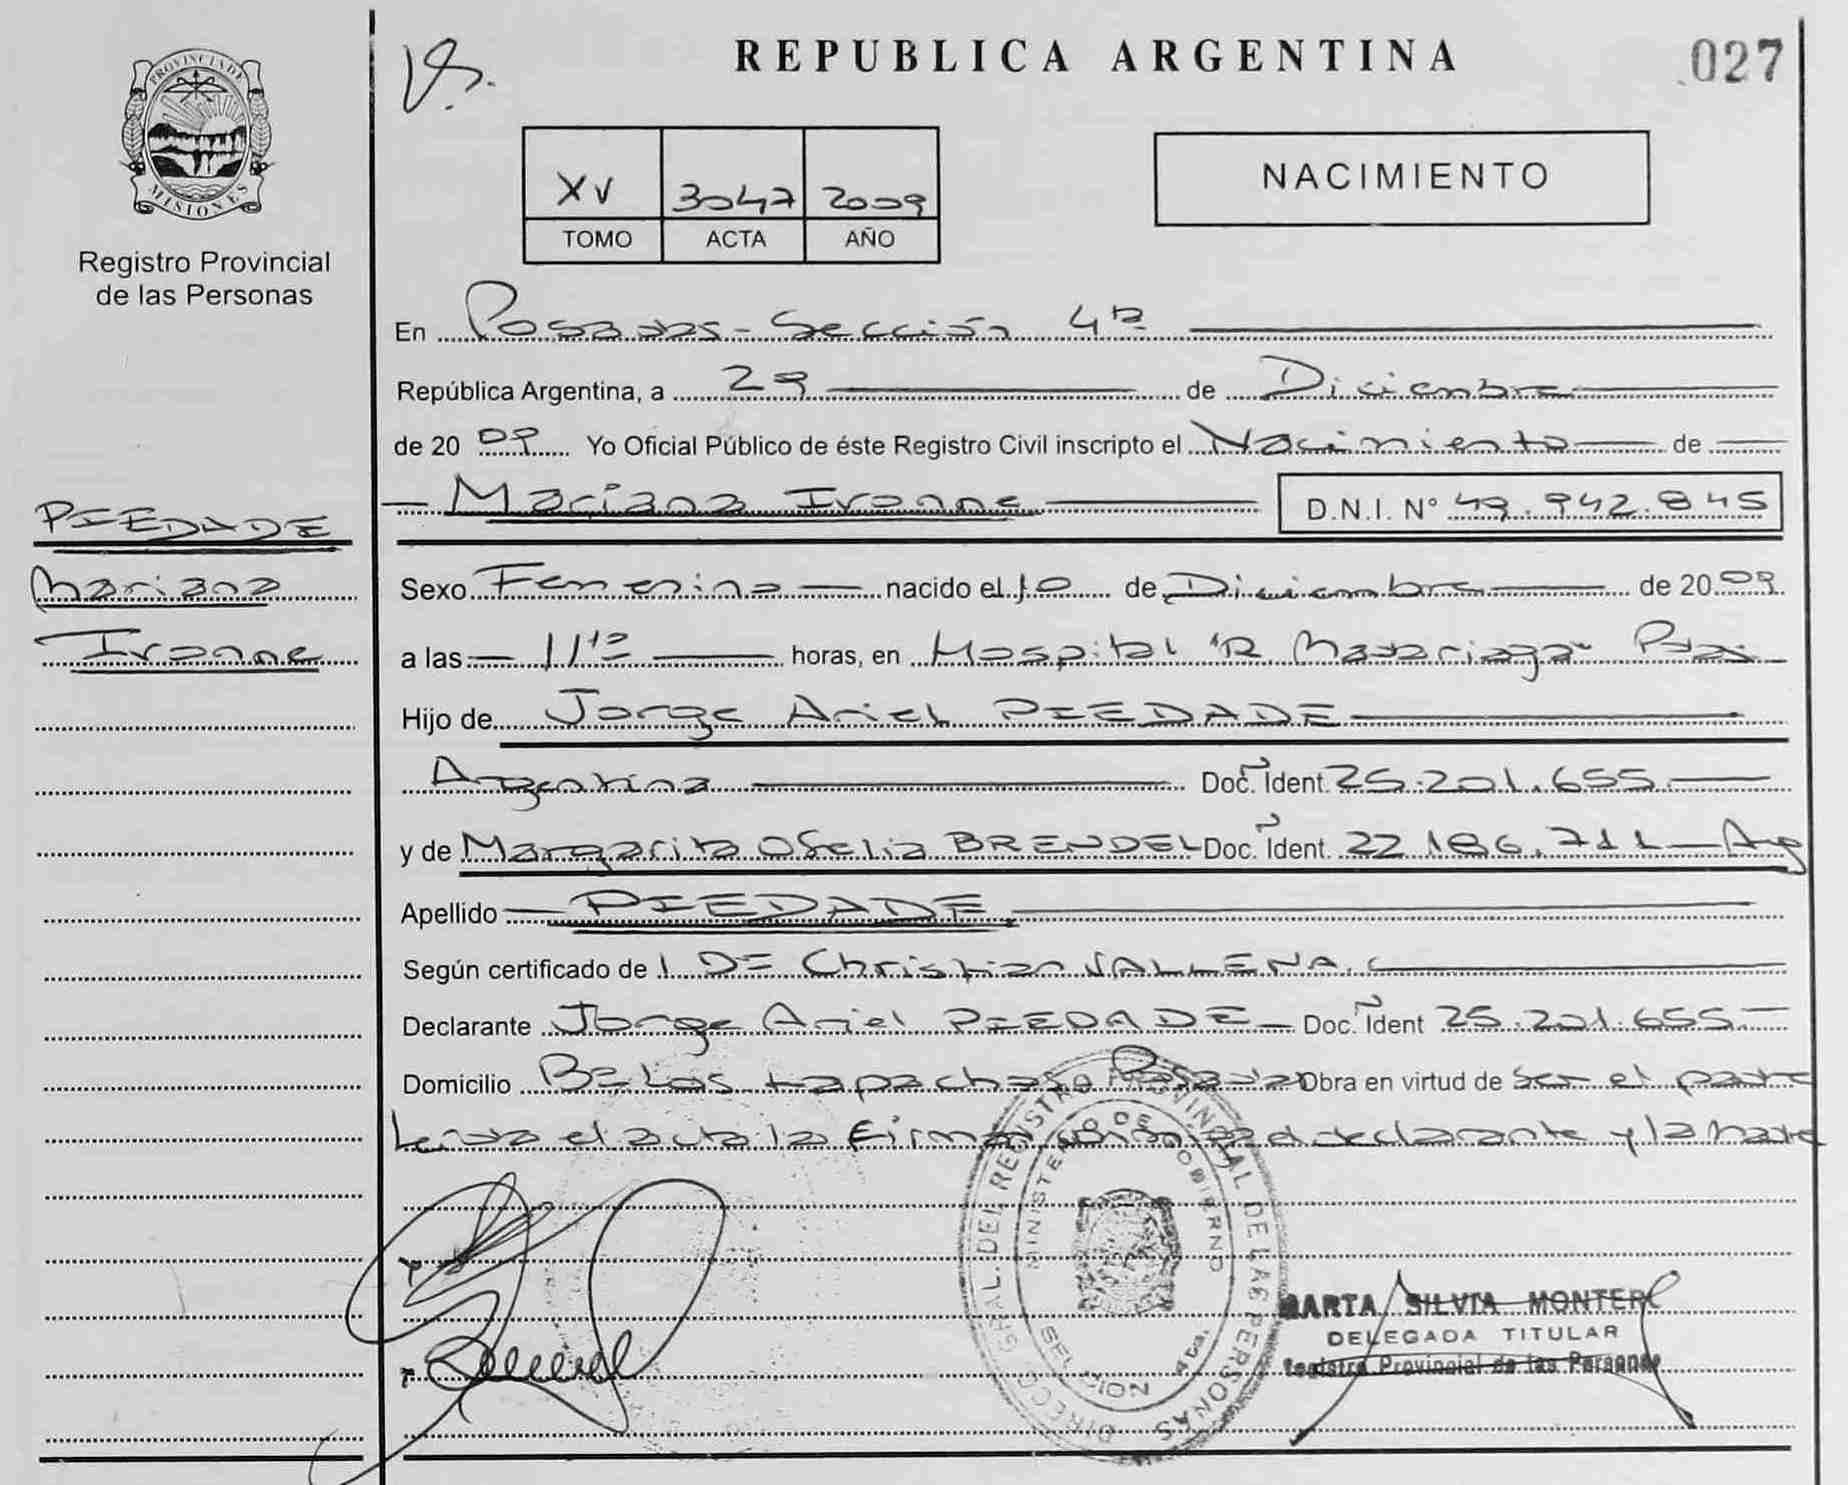 PROVINCIA DE
MISIONES
Registro Provincial
de las Personas
PIEDADE
Mariana
Ivonne
REPUBLICA ARGENTINA
027
XV 3047 2009
TOMO ACTA AÑO
NACIMIENTO
En Posadas - Sección 4ta
República Argentina, a 29 de Diciembre
de 2009 Yo Oficial Público de éste Registro Civil inscripto el Nacimiento de
Mariana Ivonne D.N.I. Nº 49.942.845
Sexo Femenino nacido el 10 de Diciembre de 2009
a las 11 horas, en Hospital "R. Madariaga" Pdas
Hijo de Jorge Ariel PIEDADE
Argentina Doc. Ident. 25.201.655
y de Margarita Ofelia BRENDEL Doc. Ident. 22.186.711 Arg
Apellido PIEDADE
Según certificado de Christian
Declarante Jorge Ariel PIEDADE Doc. Ident 25.201.655
Domicilio Bº Los Lapachos Posadas Obra en virtud de ser el padre
Leída el acta la Firman el declarante y la madre
DIRECC. GRAL. DEL REGISTRO PROVINCIAL DE LAS PERSONAS
MINISTERIO DE GOBIERNO
SECCION 4ta.
MARTA SILVIA MONTERO
DELEGADA TITULAR
Registro Provincial de las Personas